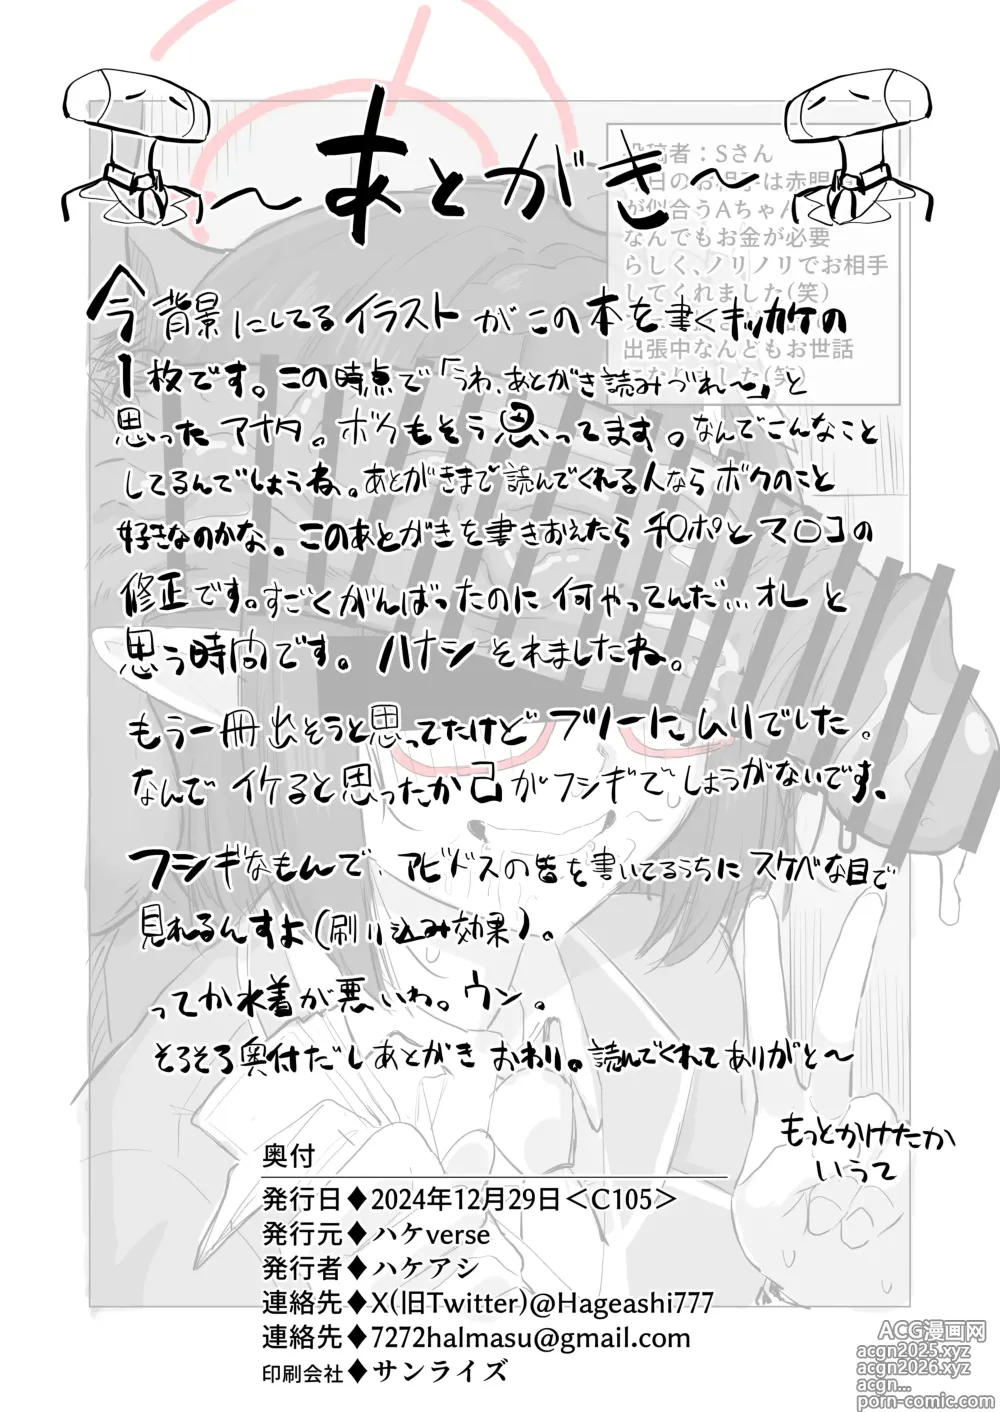 ~あとがき~
投稿者：Sさん
らしく、ノリノリでお相手
してくれました(笑)
出張中なんどもお世話
今背景にしてるイラストがこの本を書くキッカケの
1枚です。この時点で「うわ、あとがき読みづれ〜」と
思ったアナタ。ボクもそう思ってます。なんでこんなこと
してるんでしょうね。あとがきまで読んでくれる人ならボクのこと
好きなのかな。このあとがきを書きおえたらチ〇ポとマ〇コの
修正です。すごくがんばったのに何やってんだ…オレと
思う時間です。ハナシそれましたね。
もう一冊出そうと思ってたけどフツーにムリでした。
なんでイケると思ったか己がフシギでしょうがないです、
フシギなもんで、アビドスの皆を書いてるうちにスケベな目で
見れるんすよ(刷り込み効果)。
ってか水着が悪いわ。ウン。
そろそろ奥付だしあとがきおわり。読んでくれてありがと〜
もっとかけたか
いうて
奥付
発行日♦2024年12月29日＜C105＞
発行元♦ハケverse
発行者♦ハケアシ
連絡先♦X(旧Twitter)@Hageashi777
連絡先♦7272halmasu@gmail.com
印刷会社♦サンライズ
ACG漫画网
acgn2025.xyz
acgn2026.xyz
acgn...
porn-comic.com